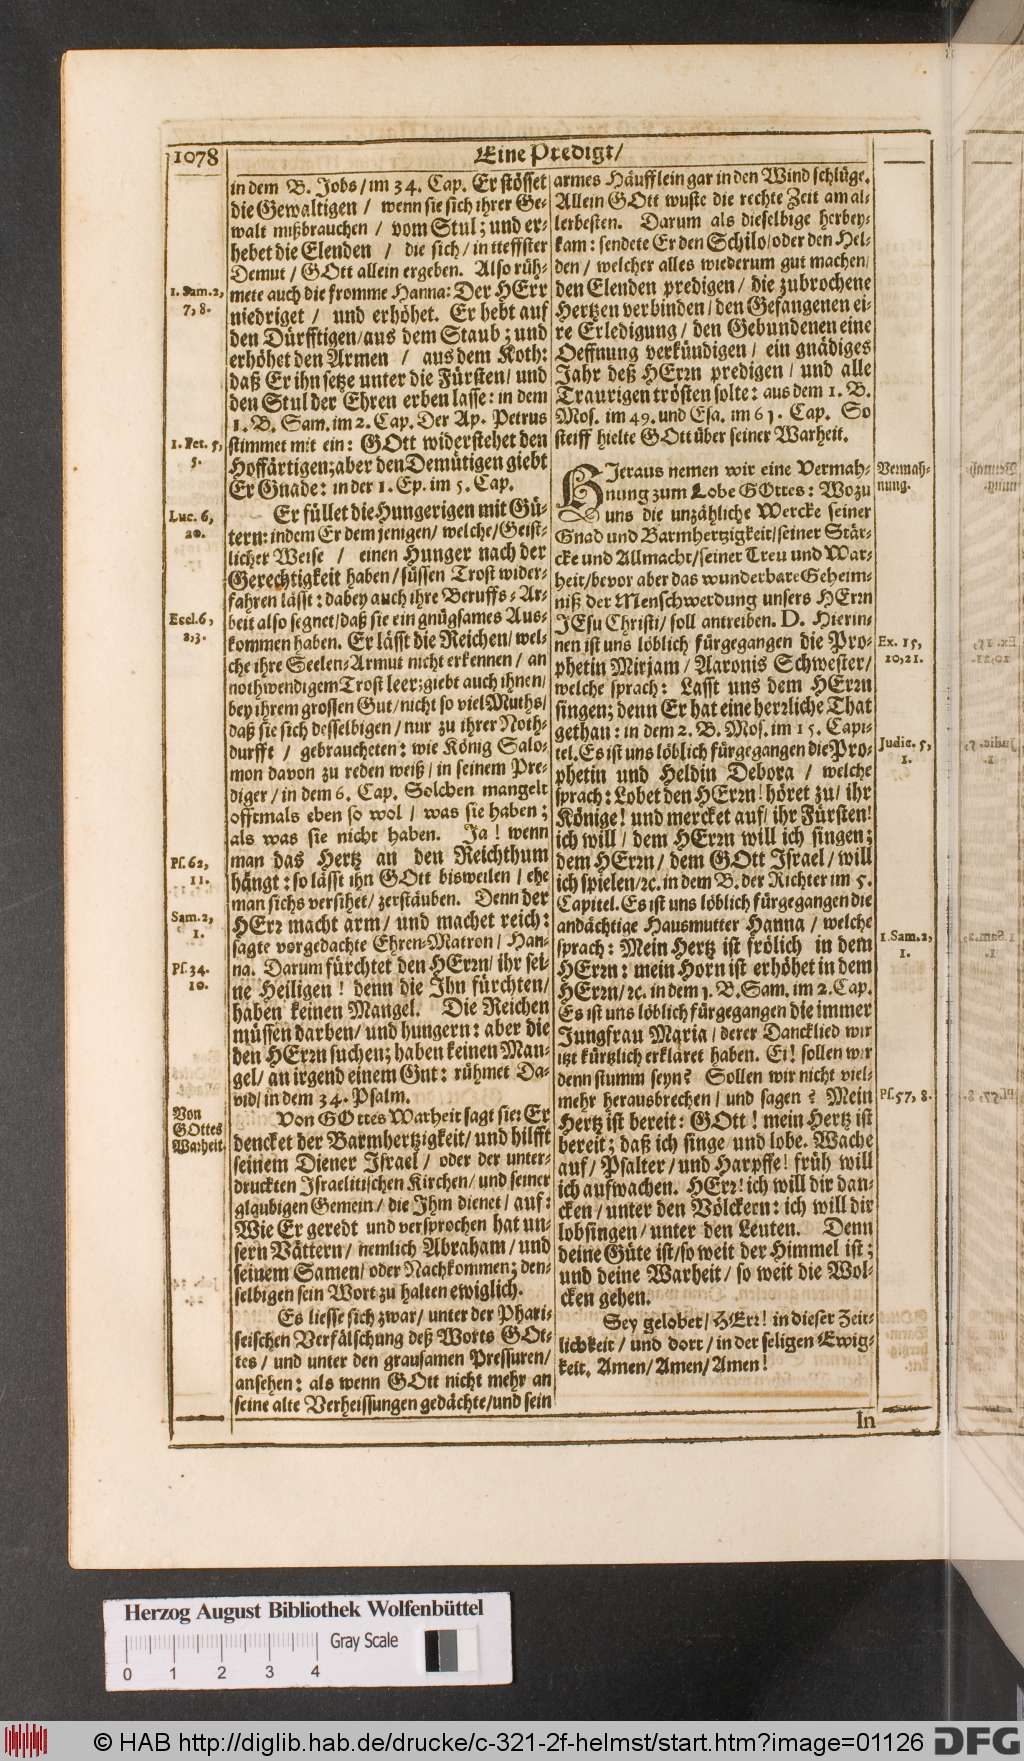 1078
Eine Predigt/
in dem B. Jobs/ im 34. Cap. Er stösset
die Gewaltigen / wenn sie sich ihrer Ge-
walt mißbrauchen / vom Stul; und er-
hebet die Elenden / die sich / in tieffster
Demut / GOtt allein ergeben. Also rüh-
mete auch die fromme Hanna: Der HErr
niedriget / und erhöhet. Er hebt auf
den Dürfftigen/aus dem Staub; und
erhöhet den Armen / aus dem Koth:
daß Er ihn setze unter die Fürsten/ und
den Stul der Ehren erben lasse: in dem
1. B. Sam. im 2. Cap. Der Ap. Petrus
stimmet mit ein: GOtt widerstehet den
Hoffärtigen; aber den Demütigen giebt
Er Gnade: in der 1. Ep. im 5. Cap.
Er füllet die Hungerigen mit Gü-
tern: indem Er dem jenigen/ welche/Geist-
licher Weise / einen Hunger nach der
Gerechtigkeit haben / süssen Trost wider-
fahren lässt: dabey auch ihre Beruffs-Ar-
beit also segnet/ daß sie ein gnügsames Aus-
kommen haben. Er lässt die Reichen/ wel-
che ihre Seelen-Armut nicht erkennen / an
nothwendigem Trost leer; giebt auch ihnen/
bey ihrem grossen Gut/ nicht so viel Muths/
daß sie sich desselbigen / nur zu ihrer Noth-
durfft / gebraucheten: wie König Salo-
mon davon zu reden weiß / in seinem Pre-
diger / in dem 6. Cap. Solchen mangelt
offtmals eben so wol / was sie haben;
als was sie nicht haben. Ja! wenn
man das Hertz an den Reichthum
hängt: so lässt ihn GOtt bisweilen / ehe
man sichs versihet/ zerstäuben. Denn der
HErr macht arm/ und machet reich:
sagte vorgedachte Ehren-Matron/ Han-
na. Darum fürchtet den HErrn/ ihr sei-
ne Heiligen! denn die Ihn fürchten/
haben keinen Mangel. Die Reichen
müssen darben/ und hungern: aber die
den HErrn suchen; haben keinen Man-
gel/ an irgend einem Gut: rühmet Da-
vid/ in dem 34. Psalm.
Von GOttes Warheit sagt sie: Er
dencket der Barmhertzigkeit/ und hilfft
seinem Diener Israel / oder der unter-
druckten Israelitischen Kirchen/ und seiner
glaubigen Gemein/ die Ihm dienet/ auf:
Wie Er geredt und versprochen hat un-
sern Vättern/ nemlich Abraham/ und
seinem Samen/ oder Nachkommen; den-
selbigen sein Wort zu halten ewiglich.
Es liesse sich zwar/ unter der Phari-
seischen Verfälschung deß Worts GOt-
tes / und unter den grausamen Pressuren/
ansehen: als wenn GOtt nicht mehr an
seine alte Verheissungen gedächte/und sein
1. Sam. 2,
7, 8.
1. Pet. 5,
5.
Luc. 6,
20.
Eccl. 6,
2, 3.
Ps. 62,
11.
Sam. 2,
1.
Ps. 34.
10.
Von
GOttes
Warheit.
armes Häufflein gar in den Wind schlüge.
Allein GOtt wuste die rechte Zeit am al-
lerbesten. Darum als dieselbige herbey-
kam: sendete Er den Schilo/ oder den Hel-
den / welcher alles wiederum gut machen/
den Elenden predigen / die zubrochene
Hertzen verbinden/ den Gefangenen ei-
re Erledigung / den Gebundenen eine
Oeffnung verkündigen / ein gnädiges
Jahr deß HErrn predigen / und alle
Traurigen trösten solte: aus dem 1. B.
Mos. im 49. und Esa. im 61. Cap. So
steiff hielte GOtt über seiner Warheit.
HJeraus nemen wir eine Vermah-
nung zum Lobe GOttes: Wozu
uns die unzähliche Wercke seiner
Gnad und Barmhertzigkeit/ seiner Stär-
cke und Allmacht/ seiner Treu und War-
heit/ bevor aber das wunderbare Geheim-
niß der Menschwerdung unsers HErrn
JEsu Christi/ soll antreiben. D. Hierin-
nen ist uns löblich fürgegangen die Pro-
phetin Mirjam / Aaronis Schwester/
welche sprach: Lasst uns dem HErrn
singen; denn Er hat eine herrliche That
gethan: in dem 2. B. Mos. im 15. Capi-
tel. Es ist uns löblich fürgegangen die Pro-
phetin und Heldin Debora / welche
sprach: Lobet den HErrn! höret zu/ ihr
Könige! und mercket auf/ ihr Fürsten!
ich will / dem HErrn will ich singen;
dem HErrn/ dem GOtt Israel / will
ich spielen/ ꝛc. in dem B. der Richter im 5.
Capitel. Es ist uns löblich fürgegangen die
andächtige Hausmutter Hanna / welche
sprach: Mein Hertz ist frölich in dem
HErrn: mein Horn ist erhöhet in dem
HErrn/ ꝛc. in dem 1. B. Sam. im 2. Cap.
Es ist uns löblich fürgegangen die immer
Jungfrau Maria / derer Dancklied wir
itzt kürtzlich erkläret haben. Ei! sollen wir
denn stumm seyn? Sollen wir nicht viel-
mehr herausbrechen/ und sagen? Mein
Hertz ist bereit: GOtt! mein Hertz ist
bereit; daß ich singe und lobe. Wache
auf/ Psalter/ und Harpffe! früh will
ich aufwachen. HErr! ich will dir dan-
cken / unter den Völckern: ich will dir
lobsingen / unter den Leuten. Denn
deine Güte ist/ so weit der Himmel ist;
und deine Warheit/ so weit die Wol-
cken gehen.
Sey gelobet/ HErr! in dieser Zeit-
lichkeit/ und dort/ in der seligen Ewig-
keit. Amen/ Amen/ Amen!
In
Vermah-
nung.
Ex. 15,
20, 21.
Judic. 5,
1.
1. Sam. 2,
1.
Ps. 57, 8.
Herzog August Bibliothek Wolfenbüttel
Gray Scale
0 1 2 3 4
© HAB http://diglib.hab.de/drucke/c-321-2f-helmst/start.htm?image=01126
DFG